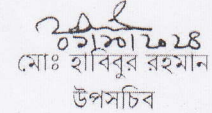 ০১/১০/২০২৪
মোঃ হাবিবুর রহমান
উপসচিব